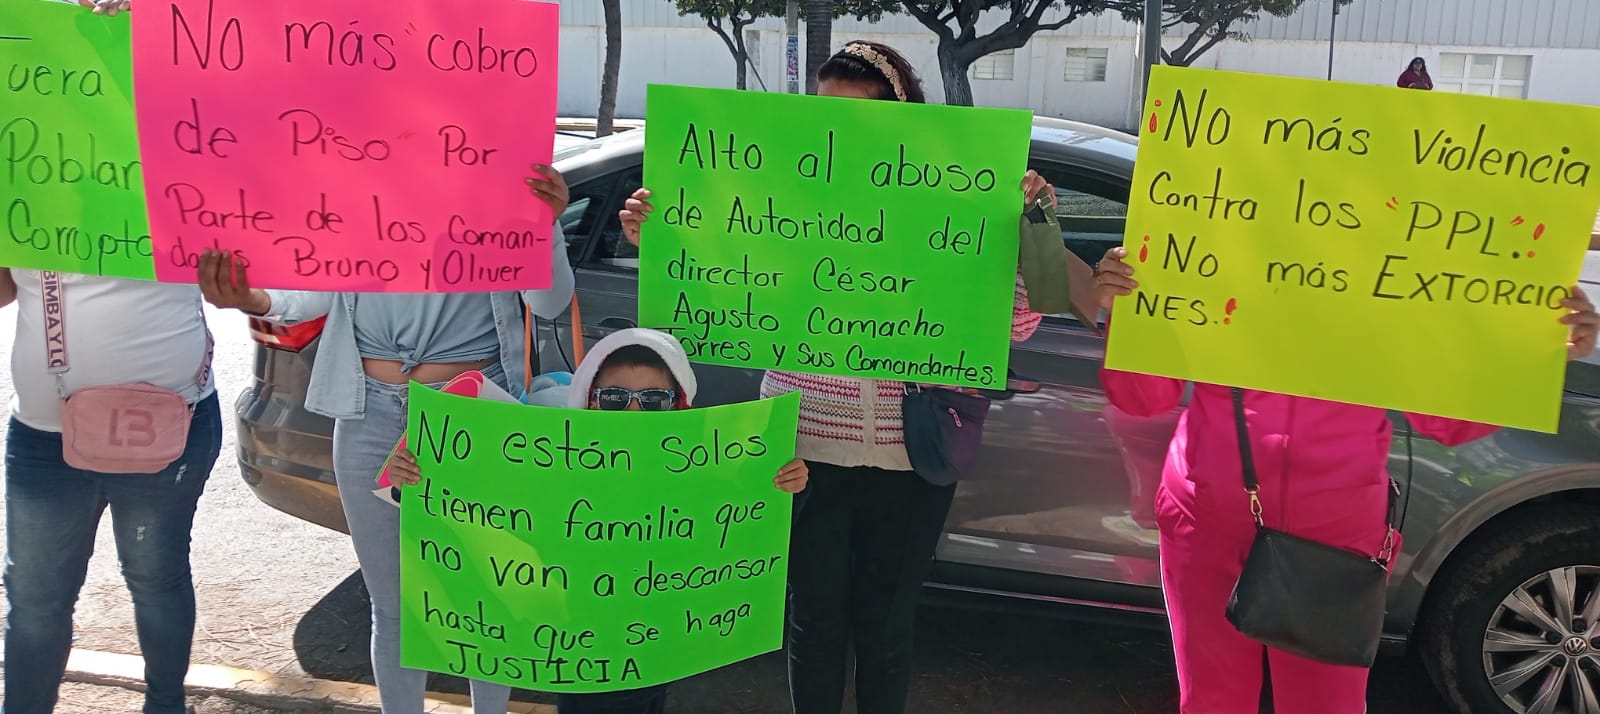 uera
Poblan
Corrupto
No más "cobro
de Piso" Por
Parte de los Coman-
dados Bruno y Oliver
Alto al abuso
de Autoridad del
director César
Agusto Camacho
Torres y Sus Comandantes.
¡No más Violencia
Contra los "PPL"!
¡No más EXTORCIO
NES.!
No están Solos
tienen familia que
no van a descansar
hasta que se haga
JUSTICIA
BIMBA Y LO